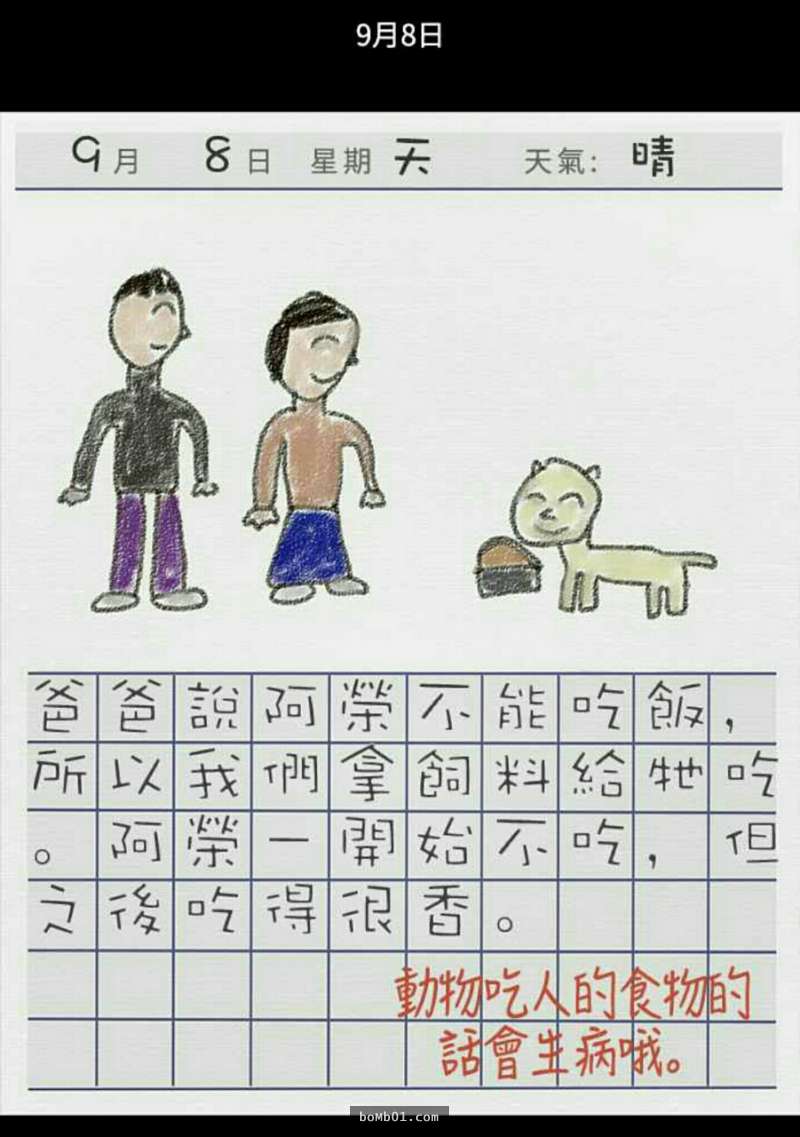 9月8日
9月 8日 星期天 天氣:晴
爸爸說阿榮不能吃飯，
所以我們拿飼料給牠吃
。阿榮一開始不吃，但
之後吃得很香。
動物吃人的食物的
話會生病哦。
boMbO1.com